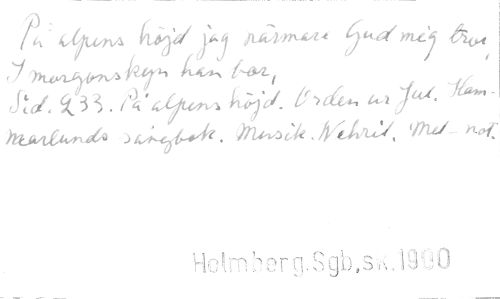 På alpens höjd jag närmare Gud mig tror,
I morgonskyn han bor,
Sid. 233. På alpens höjd. Orden ur Jul. Ham-
marlunds sångbok. Musik. Wehrit. Med not.
Holmberg.Sgb,sk.1900